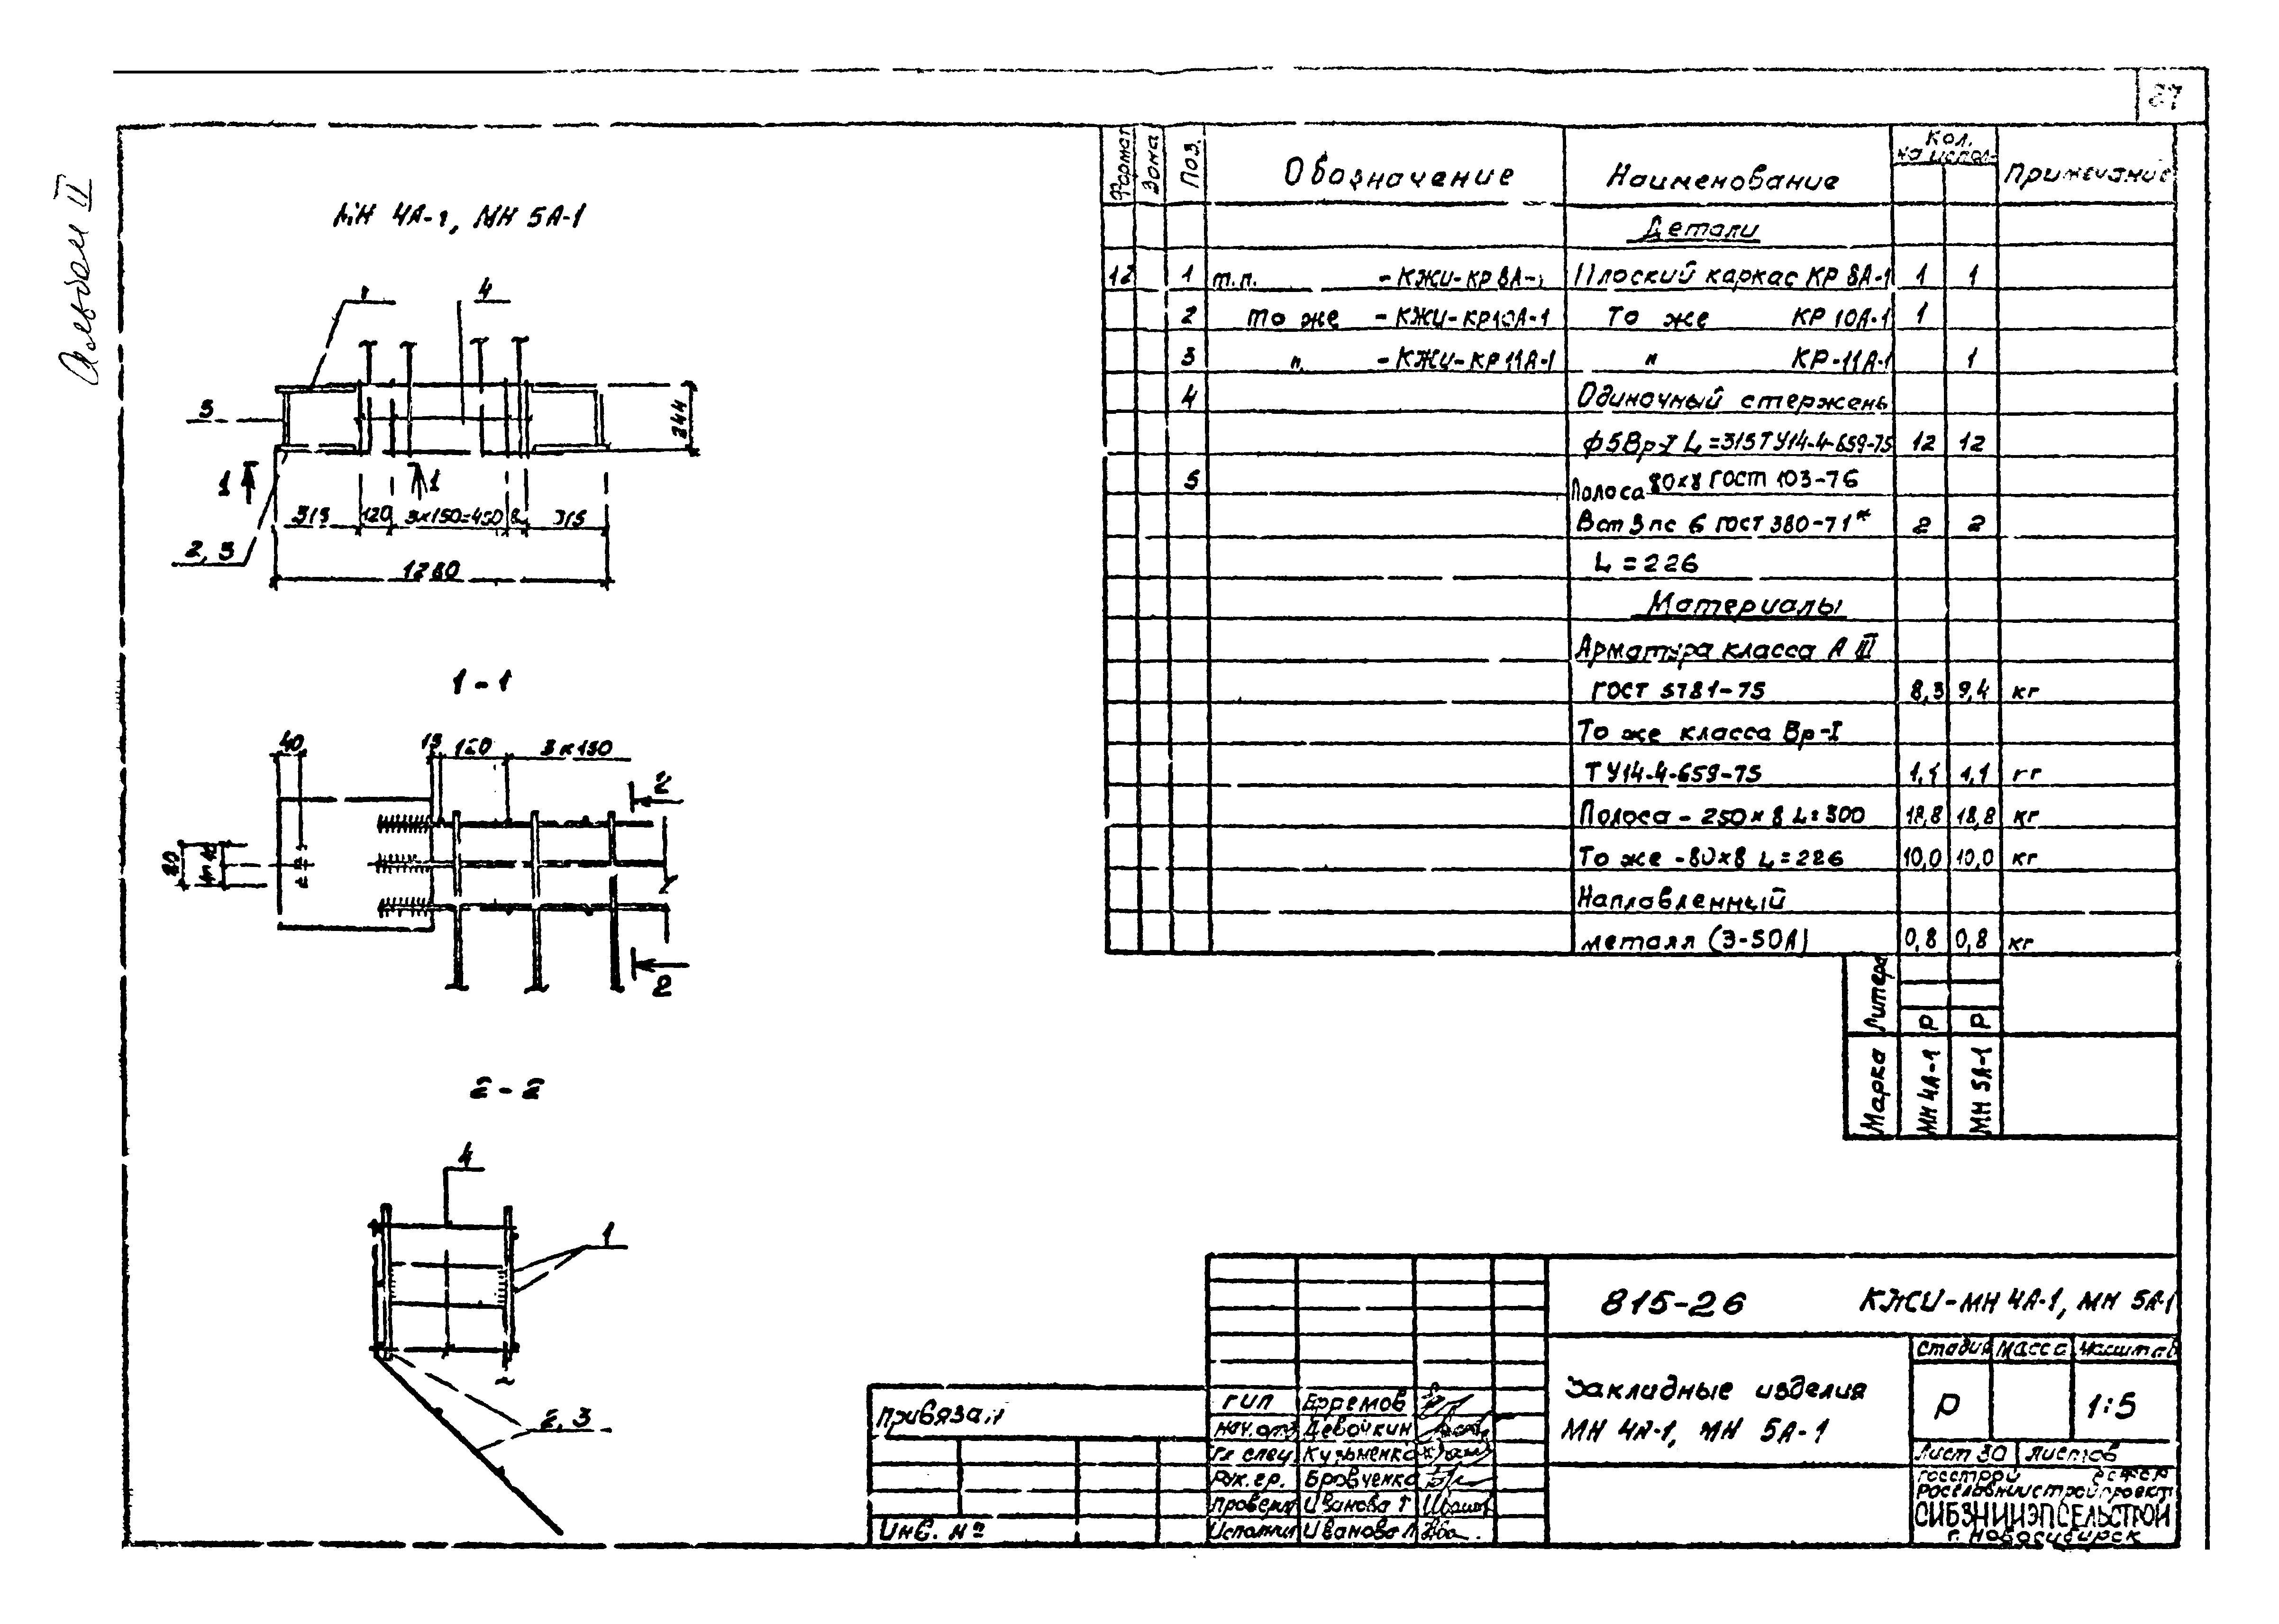 27
Альбом II
МН 4А-1, МН 5А-1
1
4
5
244
1
1
315 120 3×150=450 315
2, 3
1280
1-1
40
15 120 3×150
2
80
2
2-2
4
1
2, 3
Формат Зона Поз. Обозначение Наименование Кол. на испол. Примечание
Детали
12 1 т.п. -КЖИ-КР 8А-1 Плоский каркас КР 8А-1 1 1
2 то же -КЖИ-КР10А-1 То же КР 10А-1 1
3 " -КЖИ-КР 11А-1 " КР-11А-1 1
4 Одиночный стержень
ф5Вр-I L=315 ТУ14-4-659-75 12 12
5 Полоса 80×8 ГОСТ 103-76
Вст3пс 6 ГОСТ 380-71* 2 2
L=226
Материалы
Арматура класса А III
ГОСТ 5781-75 8,3 9,4 кг
То же класса Вр-I
ТУ14-4-659-75 1,1 1,1 кг
Полоса - 250×8 L=300 18,8 18,8 кг
То же -80×8 L=226 10,0 10,0 кг
Наплавленный
металл (Э-50А) 0,8 0,8 кг
Литера Р Р
Марка МН 4А-1 МН 5А-1
815-26 КЖИ-МН 4А-1, МН 5А-1
Закладные изделия
МН 4А-1, МН 5А-1
стадия масса масштаб
Р 1:5
Лист 30 Листов
Госстрой РСФСР
Росглавниистройпроект
СИБЗНИИЭПСЕЛЬСТРОЙ
г. Новосибирск
Привязан
Инв. №
ГИП Ефремов
Нач. отд Девочкин
Гл спец Кузьменко
Рук. гр. Бровченко
Проверил Иванова Т
Исполнил Иванова Л